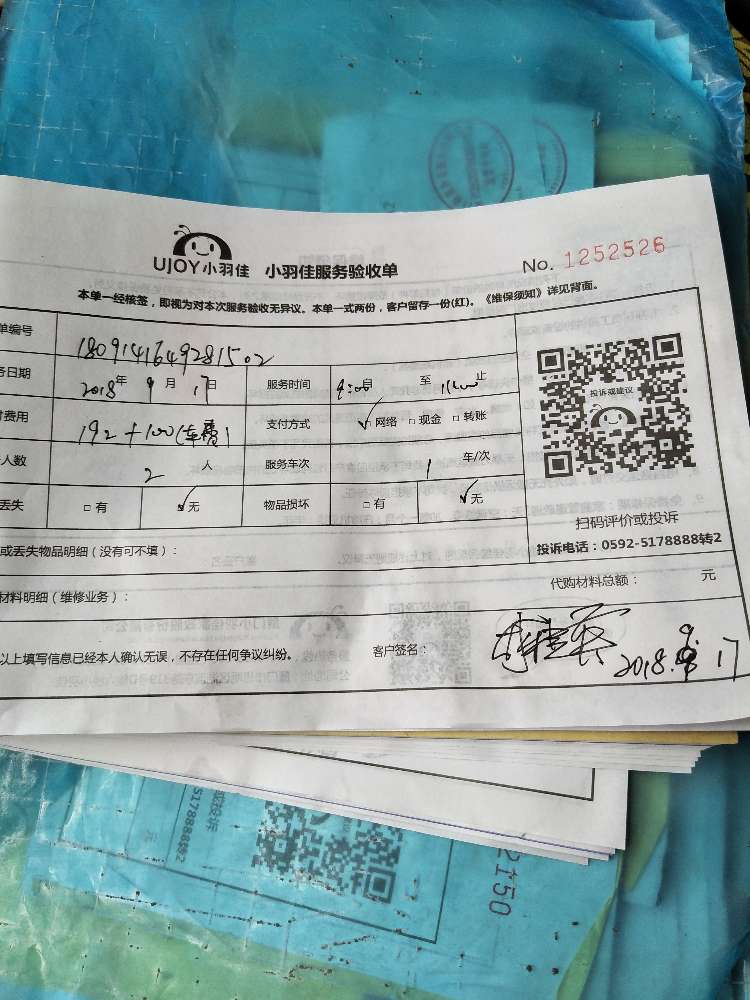 UJOY小羽佳 小羽佳服务验收单 No. 1252526
本单一经核签，即视为对本次服务验收无异议。本单一式两份，客户留存一份(红)。《维保须知》详见背面。
单编号 1809141649281502
务日期 2018年9月17日 服务时间 9:00 自 至 11:00 止
费用 192+100(车费) 支付方式 网络 现金 转账
人数 2人 服务车次 1 车/次
丢失 有 无 物品损坏 有 无
投诉或建议
扫码评价或投诉
投诉电话：0592-5178888转2
或丢失物品明细（没有可不填）：
代购材料总额： 元
材料明细（维修业务）：
以上填写信息已经本人确认无误，不存在任何争议纠纷。 客户签名： 2018.9.17
或投诉
5178888转2
元
2150